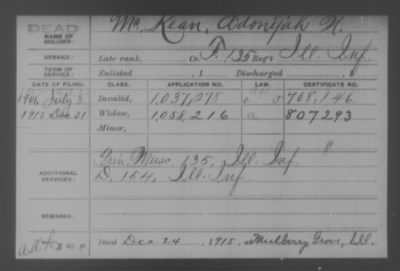 DEAD
Mc Kean, Adonijah N.
NAME OF SOLDIER:
SERVICE: Late rank, Co. F, 135 Reg't Ill. Inf.
TERM OF SERVICE: Enlisted , 1 Discharged , 1
DATE OF FILING. CLASS. APPLICATION NO. LAW. CERTIFICATE NO.
July 3 Invalid, 1,037,278 708,146
Dec 31 Widow, 1,058,216 a 807293
Minor,
135, Ill. Inf.
D, 154, Ill. Inf
ADDITIONAL SERVICES:
REMARKS:
Died Dec 24 1915, at Mulberry Grove, Ill.